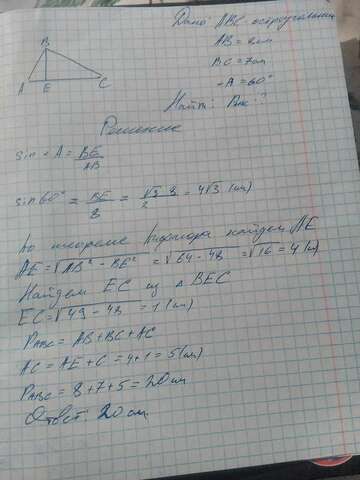 Дано: АВС остроугольный
B
AB = 8см
BC = 7см
A E C
∠A = 60°
Найти: Pавс ?
Решение
sin ∠A = BE/AB
sin 60° = BE/8 = √3 8/2 = 4√3 (см)
По теореме Пифагора найдем AE
AE = √AB² - BE² = √64 - 48 = √16 = 4 (см)
Найдем EC из △ BEC
EC = √49 - 48 = 1 (см)
PABC = AB + BC + AC
AC = AE + C = 4 + 1 = 5 (см)
PABC = 8 + 7 + 5 = 20 см
Ответ: 20 см